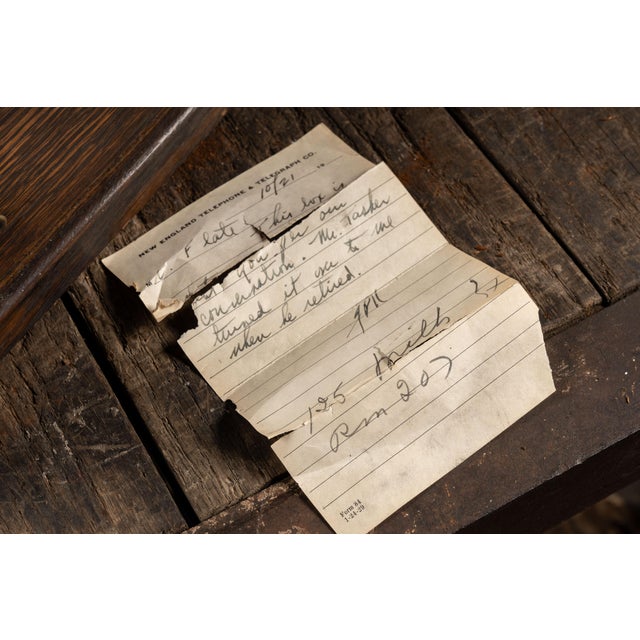 NEW ENGLAND TELEPHONE & TELEGRAPH CO.
10/21 19
late this box is
you per our
conversation. Mr. Tasker
turned it over to me
when he retired.
125 Milk St
Rm 207
Form 84
1-24-29